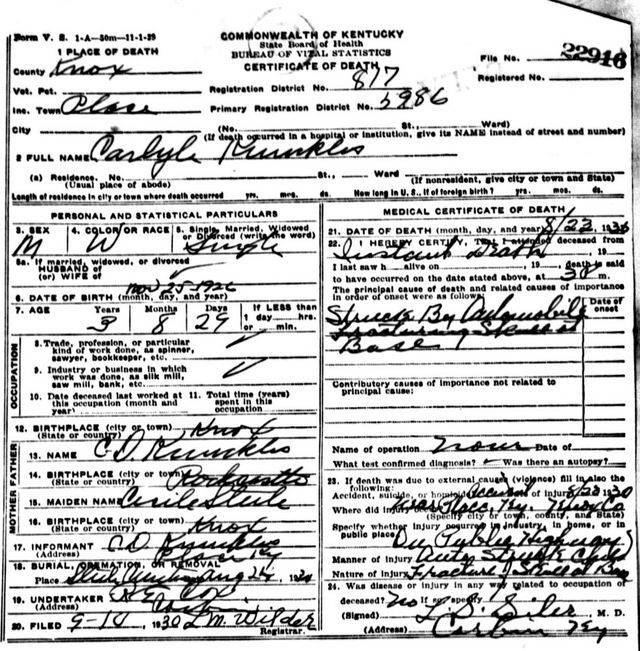 Form V. S. 1-A—50m—11-1-29
COMMONWEALTH OF KENTUCKY
State Board of Health
BUREAU OF VITAL STATISTICS
CERTIFICATE OF DEATH
File No. 22916
Registered No.
1 PLACE OF DEATH
County Knox
Vot. Pct.
Registration District No. 877
Inc. Town Place
Primary Registration District No. 5986
City (No. St., Ward)
(If death occurred in a hospital or institution, give its NAME instead of street and number)
2 FULL NAME Carlyle
(a) Residence. No. St., Ward
(Usual place of abode) (If nonresident, give city or town and State)
Length of residence in city or town where death occurred yrs. mos. ds. How long in U. S., if of foreign birth? yrs. mos. ds.
PERSONAL AND STATISTICAL PARTICULARS
3. SEX M
4. COLOR OR RACE W
5. Single, Married, Widowed or Divorced (write the word) Single
5a. If married, widowed, or divorced
HUSBAND of
(or) WIFE of
6. DATE OF BIRTH (month, day, and year) Nov 25 1926
7. AGE Years 3 Months 8 Days 29 If LESS than 1 day hrs. or min.
OCCUPATION
8. Trade, profession, or particular kind of work done, as spinner, sawyer, bookkeeper, etc.
9. Industry or business in which work was done, as silk mill, saw mill, bank, etc.
10. Date deceased last worked at this occupation (month and year)
11. Total time (years) spent in this occupation
12. BIRTHPLACE (city or town) Knox
(State or country)
FATHER
13. NAME C D
14. BIRTHPLACE (city or town)
(State or country)
MOTHER
15. MAIDEN NAME
16. BIRTHPLACE (city or town) Knox
(State or country)
17. INFORMANT C D
(Address)
18. BURIAL, CREMATION, OR REMOVAL
Place Aug 24, 1930
19. UNDERTAKER Cox
(Address)
20. FILED 9-10 1930 L. M. Wilder
Registrar.
MEDICAL CERTIFICATE OF DEATH
21. DATE OF DEATH (month, day, and year) 8/23 1930
22. I HEREBY CERTIFY, That I attended deceased from
Instant Death, 19
I last saw h alive on , 19 death is said
to have occurred on the date stated above, at m.
The principal cause of death and related causes of importance
in order of onset were as follows: Date of onset
Struck By Automobile
Fracturing Skull at
Base
Contributory causes of importance not related to
principal cause:
Name of operation none Date of
What test confirmed diagnosis? Was there an autopsy?
23. If death was due to external causes (violence) fill in also the
following:
Accident, suicide, or homicide? of injury 1930
Where did injury
(Specify city or town, county, and State)
Specify whether injury occurred in industry, in home, or in
public place On Public Highway
Manner of injury Auto Struck Child
Nature of injury Fracture Skull at
24. Was disease or injury in any way related to occupation of
deceased? No If so, specify
(Signed) Siler, M. D.
(Address) Corbin Ky